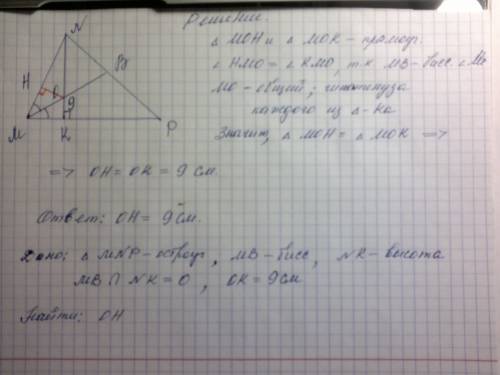 Решение.
△ MOH и △ MOK – прямоуг.
∠ HMO = ∠ KMO, т.к. MB – бисс. ∠ M
MO – общий; гипотенуза
каждого из △-ка
Значит, △ MOH = △ MOK =>
=> OH = OK = 9 см.
N
B
H
O
9
M
K
P
Ответ: OH = 9 см.
Дано: △ MNP – остроуг, MB – бисс, NK – высота
MB ∩ NK = O, OK = 9 см
Найти: OH